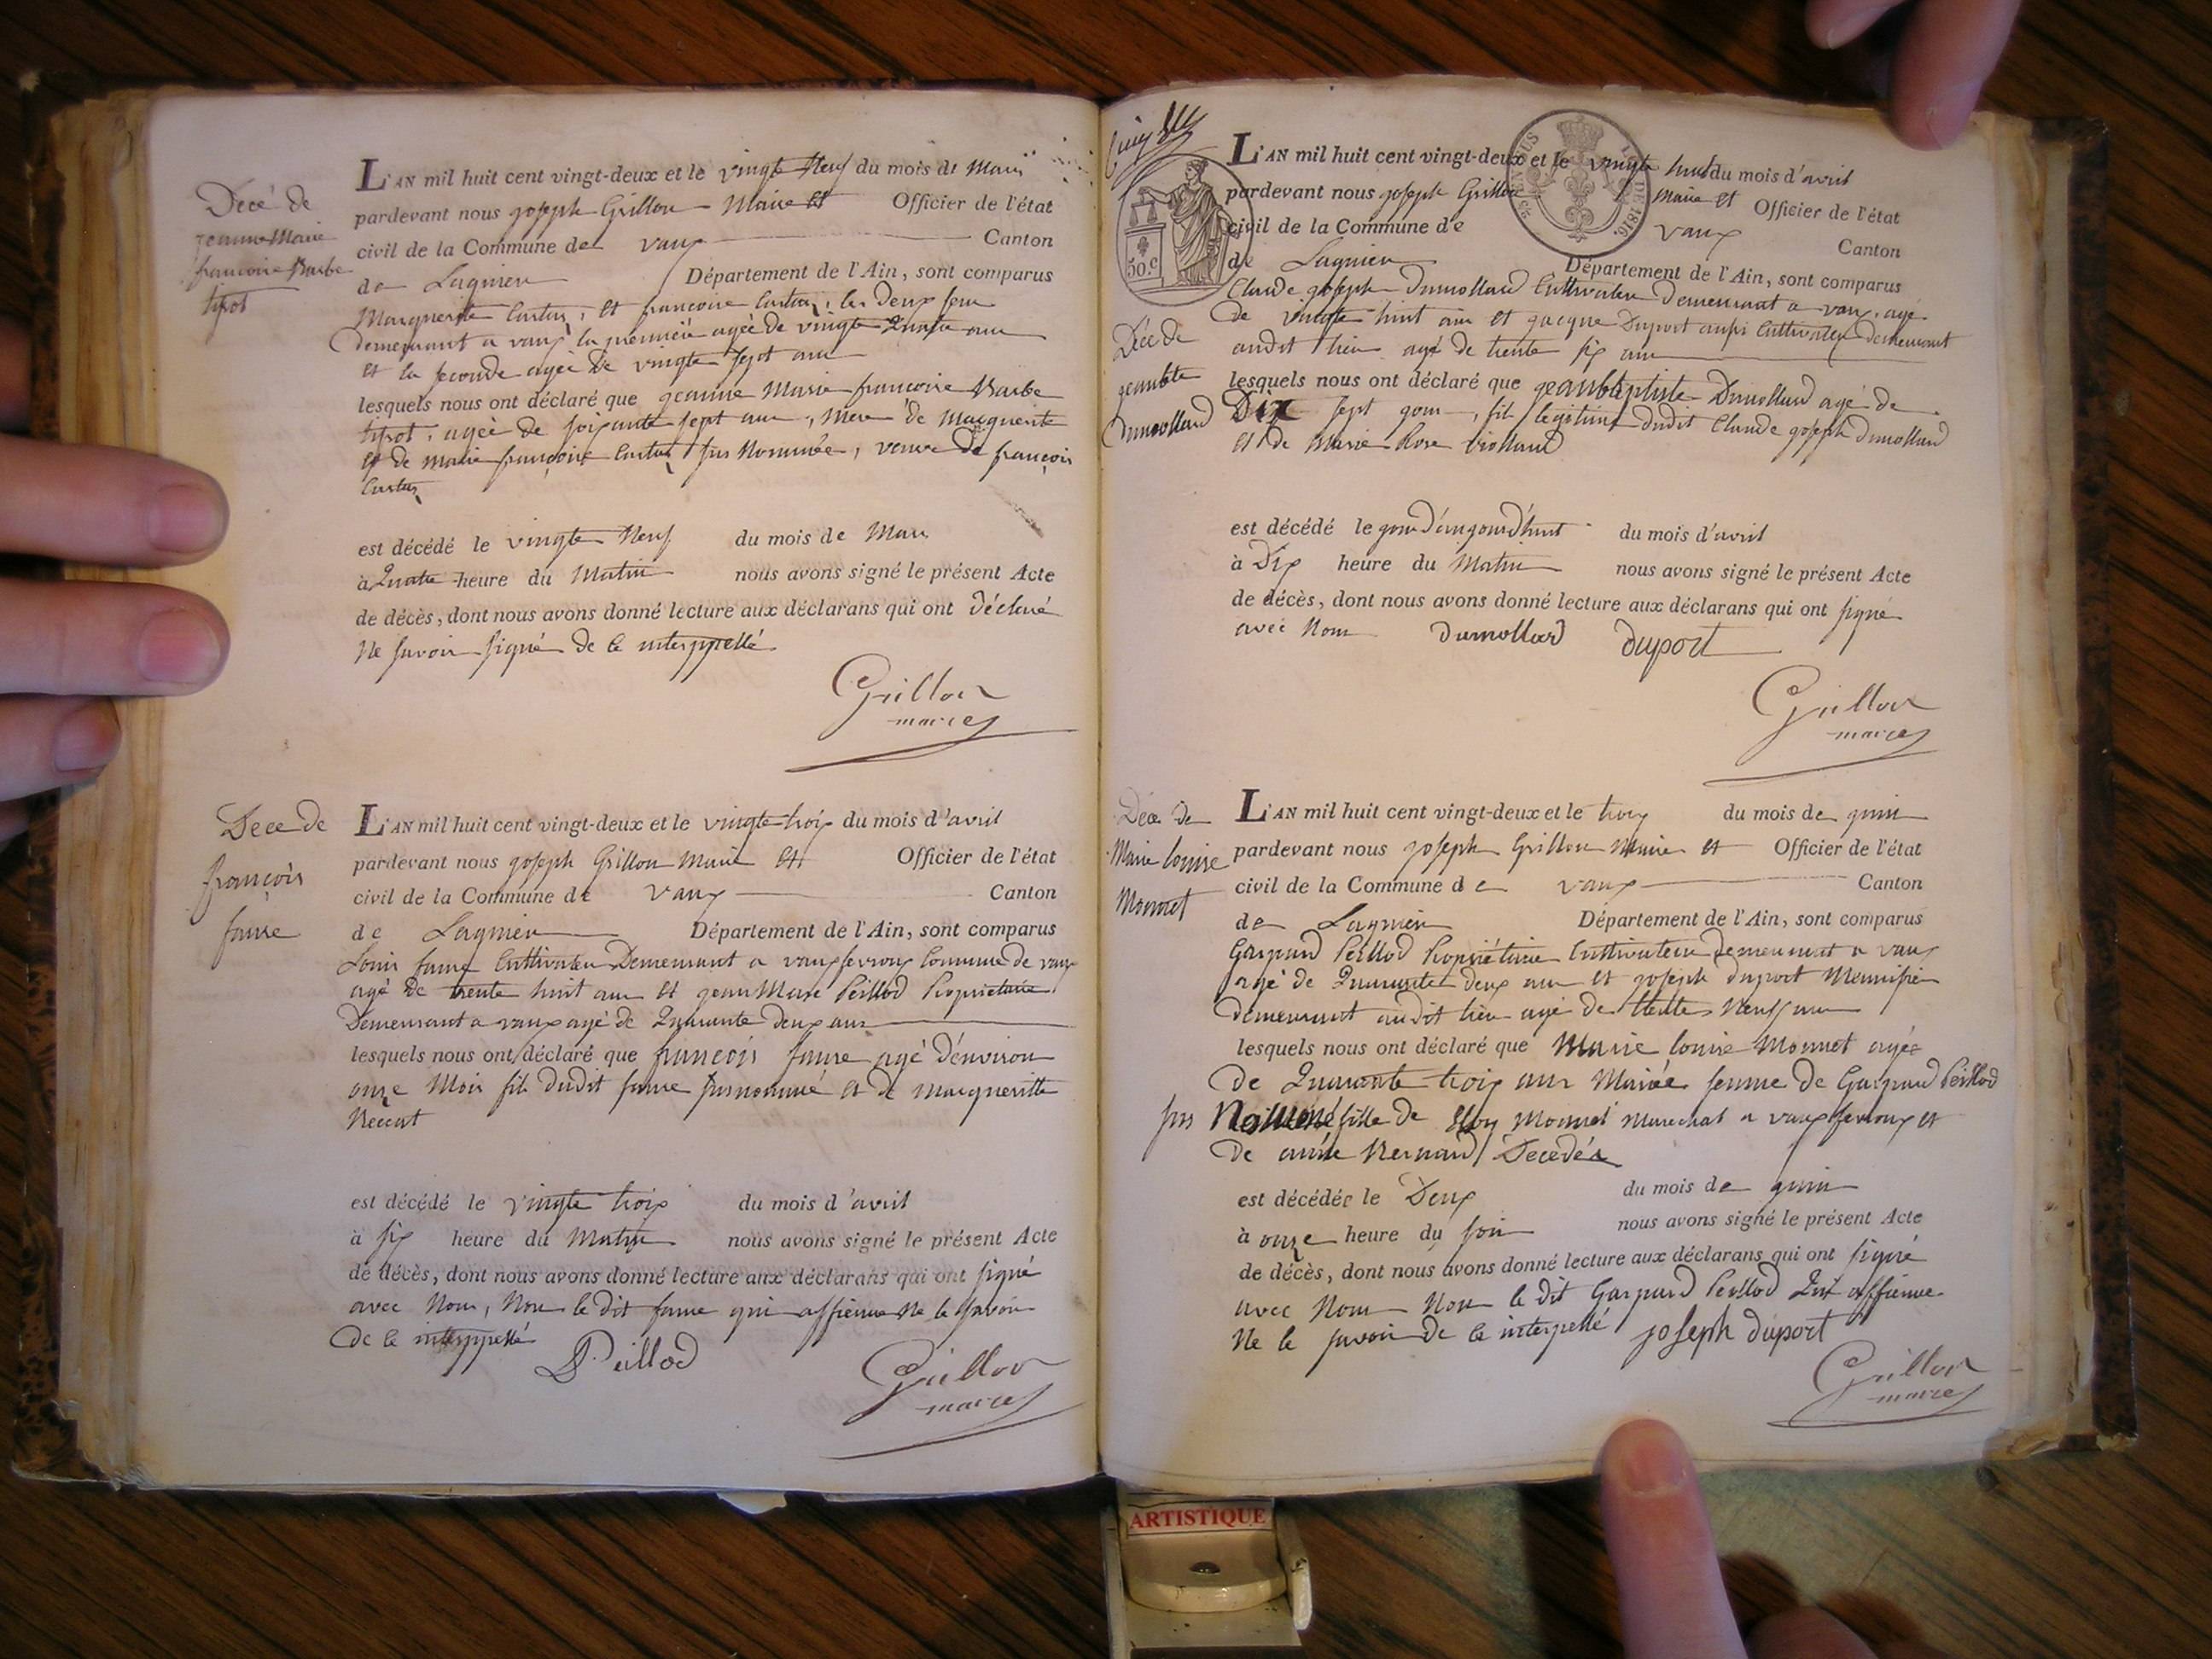 Décé de
jeanne Marie
françoise Barbe
tipot
L'AN mil huit cent vingt-deux et le vingte Neuf du mois de Mars
pardevant nous joseph Grillon Maire et Officier de l'état
civil de la Commune de vaux Canton
de Lagnieu Département de l'Ain, sont comparus
Marguerite et françoise les deux
demeurant a vaux la premiere agéé de vingte quatre ans
et la seconde agéé de vingte sept ans
lesquels nous ont déclaré que jeanne Marie françoise Barbe
tipot, agéé de soixante sept ans, Mere de Marguerite
et de marie françoise sus Nommée, veuve de françois
est décédé le vingte Neuf du mois de Mars
à Quatre heure du Matin nous avons signé le présent Acte
de décès, dont nous avons donné lecture aux déclarans qui ont déclaré
Ne savoir signé de ce interppellé
Grillon
maire
Décé de
françois
faure
L'AN mil huit cent vingt-deux et le vingte trois du mois d'avril
pardevant nous joseph Grillon Maire et Officier de l'état
civil de la Commune de vaux Canton
de Lagnieu Département de l'Ain, sont comparus
Louis faure Cultivateur Demeurant a vauxfevroux Commune de vaux
agé de trente huit ans et jean Marie Peillod Propriétaire
Demeurant a vaux agé de Quarante deux ans
lesquels nous ont déclaré que françois faure agé d'environ
onze Mois fils dudit faure susnommé et de Margueritte
est décédé le vingte trois du mois d'avril
à six heure du Matin nous avons signé le présent Acte
de décès, dont nous avons donné lecture aux déclarans qui ont signé
avec Nous, Non le dit faure qui affirme Ne le savoir
de ce interppellé
Peillod
Grillon
maire
50.c
L'AN mil huit cent vingt-deux et le vingte huit du mois d'avril
pardevant nous joseph Grillon Maire et Officier de l'état
civil de la Commune de vaux Canton
de Lagnieu Département de l'Ain, sont comparus
Claude joseph Dumollard Cultivateur demeurant a vaux, agé
de vingte huit ans et jacque Duport aussi Cultivateur demeurant
audit lieu agé de trente six ans
Décé de
jeanbte
Dumollard
lesquels nous ont déclaré que jeanbaptiste Dumollard agé de
Dix sept jour, fils légitime dudit Claude joseph Dumollard
et de Marie Rose
est décédé le jour d'aujourd'huit du mois d'avril
à Dix heure du Matin nous avons signé le présent Acte
de décès, dont nous avons donné lecture aux déclarans qui ont signé
avec Nous Dumollard duport
Grillon
maire
Décé de
Marie louise
Monnet
L'AN mil huit cent vingt-deux et le trois du mois de juin
pardevant nous joseph Grillon Maire et Officier de l'état
civil de la Commune de vaux Canton
de Lagnieu Département de l'Ain, sont comparus
Gaspard Peillod Propriétaire Cultivateur demeurant a vaux
agé de Quarante deux ans et joseph duport Menuisier
demeurant audit lieu agé de trente Neuf ans
lesquels nous ont déclaré que Marie louise Monnet agéé
de Quarante trois ans Mariée femme de Gaspard Peillod
sus Nommé fille de Eloy Monnet Marechal a vauxfevroux et
de année Bernard Decedée
est décédée le Deux du mois de juin
à onze heure du soir nous avons signé le présent Acte
de décès, dont nous avons donné lecture aux déclarans qui ont signé
avec Nous Non le dit Gaspard Peillod Qui affirme
Ne le savoir de ce interpellé joseph duport
Grillon
maire
ARTISTIQUE